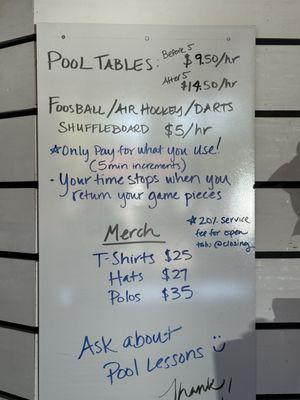 POOL TABLES: Before 5 $9.50/hr
After 5 $14.50/hr
FOOSBALL/AIR HOCKEY/DARTS
SHUFFLEBOARD $5/hr
*Only Pay for what you use!
(5 min increments)
- Your time stops when you
return your game pieces
* 20% service
fee for open
tabs @closing
Merch
T-Shirts $25
Hats $27
Polos $35
Ask about
Pool Lessons :)
Thank